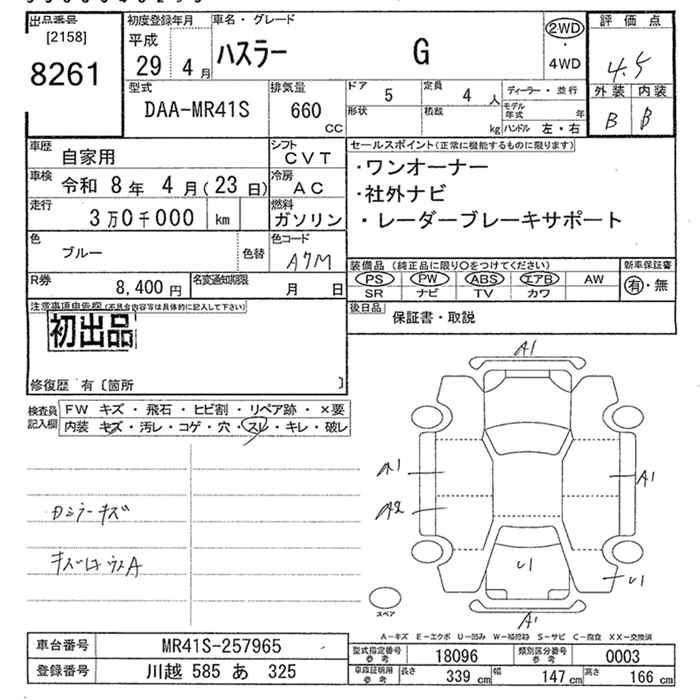 出品番号
[2158]
8261
初度登録年月
平成
29 4 月
車名・グレード
ハスラー G
2WD
・
4WD
評価点
4.5
外装 内装
B B
型式
DAA-MR41S
排気量
660
CC
ドア 5
定員 4 人
形状
積載 kg
ディーラー・並行
モデル年式 年
ハンドル 左・右
車歴
自家用
シフト
CVT
車検
令和 8 年 4 月 (23 日)
冷房
AC
走行
3万0千000 km
燃料
ガソリン
色
ブルー
色替
色コード
A7M
R券
8,400 円
名変通知期限
月 日
セールスポイント(正常に機能するものに限ります)
・ワンオーナー
・社外ナビ
・レーダーブレーキサポート
装備品(純正品に限り○をつけてください)
PS PW ABS エアB AW
SR ナビ TV カワ
新車保証書
有・無
後日品
保証書・取説
注意事項申告欄(不具合内容等は具体的に記入して下さい)
初出品
修復歴 有〔箇所 〕
検査員記入欄
FW キズ・飛石・ヒビ割・リペア跡・×要
内装 キズ・汚レ・コゲ・穴・スレ・キレ・破レ
Dミラーキズ
A1
A1
A2
A1
U1
U1
A1
スペア
A-キズ E-エクボ U-凹み W-補修跡 S-サビ C-腐食 XX-交換済
車台番号
MR41S-257965
登録番号
川越 585 あ 325
型式指定番号
参考
18096
類別区分番号
参考
0003
車庫証明用
参考
長さ 339 cm
幅 147 cm
高さ 166 cm